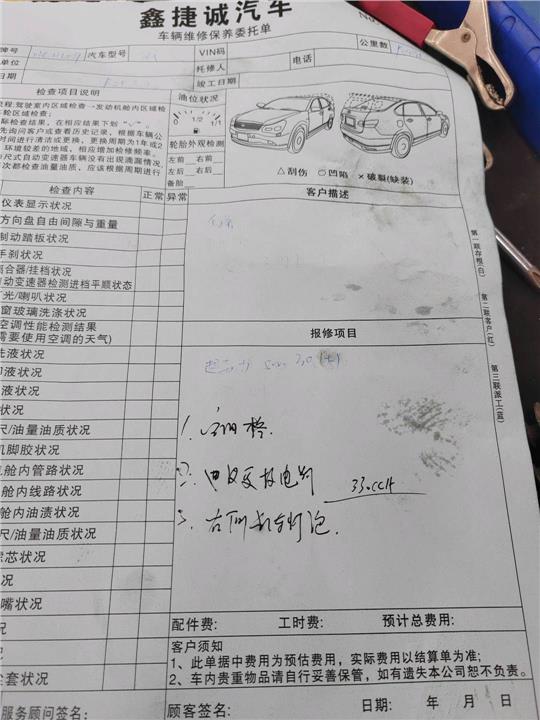 鑫捷诚汽车
车辆维修保养委托单
No
牌号 汽车型号 VIN码 公里数
单位 托修人 电话
日期 竣工日期
检查项目说明
流程:驾驶室内区域检查→发动机舱内区域检
轮区域检查;
际检查结果,在相应结果下划"√"。
先询问客户或查看历史记录,根据车辆公
时间进行清洁或更换,更换周期为1年或2
环境较差的地域、相应增加检修频率。
尺式自动变速器车辆没有出现渗漏情况,
次都检查油量油质、应该根据周期进行
油位状况
0 1/2 1/1
轮胎外观检测
左前 右前
左后 右后
备胎
△刮伤 ○凹陷 ×破裂(缺装)
检查内容 正常 异常
客户描述
仪表显示状况
方向盘自由间隙与重量
制动踏板状况
手刹状况
离合器/挂档状况
自动变速器检测进档平顺状态
灯光/喇叭状况
窗玻璃洗涤状况
空调性能检测结果
需要使用空调的天气)
洗液状况
却液状况
液状况
状况
尺/油量油质状况
机脚胶状况
舱内管路状况
舱内线路状况
舱内油渍状况
尺/油量油质状况
滤芯状况
况
嘴状况
况
全套状况
报修项目
1.
2.
3.
配件费: 工时费: 预计总费用:
客户须知
1、此单据中费用为预估费用,实际费用以结算单为准;
2、车内贵重物品请自行妥善保管,如有遗失本公司恕不负责。
服务顾问签名: 顾客签名: 日期: 年 月 日
第一联存根(白)
第二联客户(红)
第三联派工(蓝)